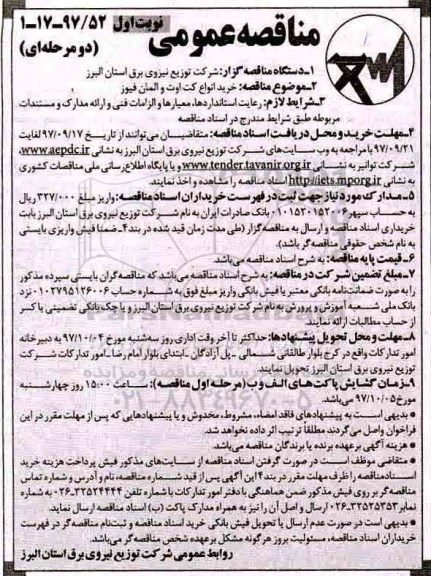 مناقصه عمومی
نوبت اول
۱-۱۷-۹۷/۵۲
(دو مرحله‌ای)
۱-دستگاه مناقصه گزار: شرکت توزیع نیروی برق استان البرز
۲-موضوع مناقصه: خرید انواع کت اوت و المان فیوز
۳-شرایط لازم: رعایت استانداردها، معیارها و الزامات فنی و ارائه مدارک و مستندات
مربوطه طبق شرایط مندرج در اسناد مناقصه
۴-مهلت خرید و محل دریافت اسناد مناقصه: متقاضیان می‌توانند از تاریخ ۹۷/۰۹/۱۷ لغایت
۹۷/۰۹/۲۱ با مراجعه به وب سایت‌های شرکت توزیع نیروی برق استان البرز به نشانی www.aepdc.ir،
شرکت توانیر به نشانی www.tender.tavanir.org.ir و یا پایگاه اطلاع‌رسانی ملی مناقصات کشوری
به نشانی http://iets.mporg.ir اسناد مناقصه را مشاهده و اخذ نمایند.
۵-مدارک مورد نیاز جهت ثبت در فهرست خریداران اسناد مناقصه: واریز مبلغ ۳۲۷/۰۰۰ ریال
به حساب سپهر ۰۱۰۱۵۲۰۱۵۲۰۰۶ بانک صادرات ایران به نام شرکت توزیع نیروی برق استان البرز بابت
خریداری اسناد مناقصه و ارسال به مناقصه گزار (طی مدت زمان قید شده در بند ۴-ضمنا فیش واریزی بایستی
به نام شخص حقوقی مناقصه‌گر باشد).
۶-قیمت پایه مناقصه: به شرح اسناد مناقصه می‌باشد.
۷-مبلغ تضمین شرکت در مناقصه: به شرح اسناد مناقصه می‌باشد که مناقصه‌گران بایستی سپرده مذکور
را به صورت ضمانت‌نامه بانکی معتبر یا فیش بانکی واریز مبلغ فوق به شماره حساب ۰۱۰۲۷۹۵۱۲۶۰۰۶ نزد
بانک ملی شعبه آموزش و پرورش به نام شرکت توزیع نیروی برق استان البرز و یا چک بانکی تضمینی یا کسر
از حساب مطالبات ارائه نمایند.
۸-مهلت و محل تحویل پیشنهادها: حداکثر تا آخر وقت اداری روز سه‌شنبه مورخ ۹۷/۱۰/۰۴ به دبیرخانه
امور تدارکات واقع در کرج بلوار طالقانی شمالی -پل آزادگان -ابتدای بلوار امام رضا-امور تدارکات شرکت
توزیع نیروی برق استان البرز تحویل نمایند.
۹-زمان گشایش پاکت‌های الف و ب (مرحله اول مناقصه): ساعت ۱۵:۰۰ روز چهارشنبه
مورخ ۹۷/۱۰/۰۵ می‌باشد.
• بدیهی است به پیشنهادهای فاقد امضاء، مشروط، مخدوش و یا پیشنهادهایی که پس از مهلت مقرر در این
فراخوان واصل می‌گردند مطلقا ترتیب اثر داده نخواهد شد.
• هزینه آگهی بر عهده برنده یا برندگان مناقصه می‌باشد.
• متقاضی موظف است در صورت گرفتن اسناد مناقصه از سایت‌های مذکور فیش پرداخت هزینه خرید
اسناد مناقصه را ظرف مهلت مقرر در بند ۴ این آگهی پس از قید شماره مناقصه، نام و آدرس و شماره تماس
مناقصه‌گر بر روی فیش مذکور ضمن هماهنگی با دفتر امور تدارکات با شماره تلفن ۳۲۵۲۴۴۴۴-۰۲۶ به شماره
نمابر ۳۲۵۲۵۳۵۳-۰۲۶ ارسال و اصل آن را نیز به همراه مدارک پاکت (ب) اسناد مناقصه ارسال نماید.
• بدیهی است در صورت عدم ارسال یا تحویل فیش بانکی خرید اسناد مناقصه و ثبت‌نام مناقصه‌گر در فهرست
خریداران اسناد مناقصه، مسئولیت بروز هرگونه مشکل بر عهده شخص مناقصه‌گر می‌باشد.
روابط عمومی شرکت توزیع نیروی برق استان البرز
۰۲۱-۸۸۳۴۹۶۷۰-۵